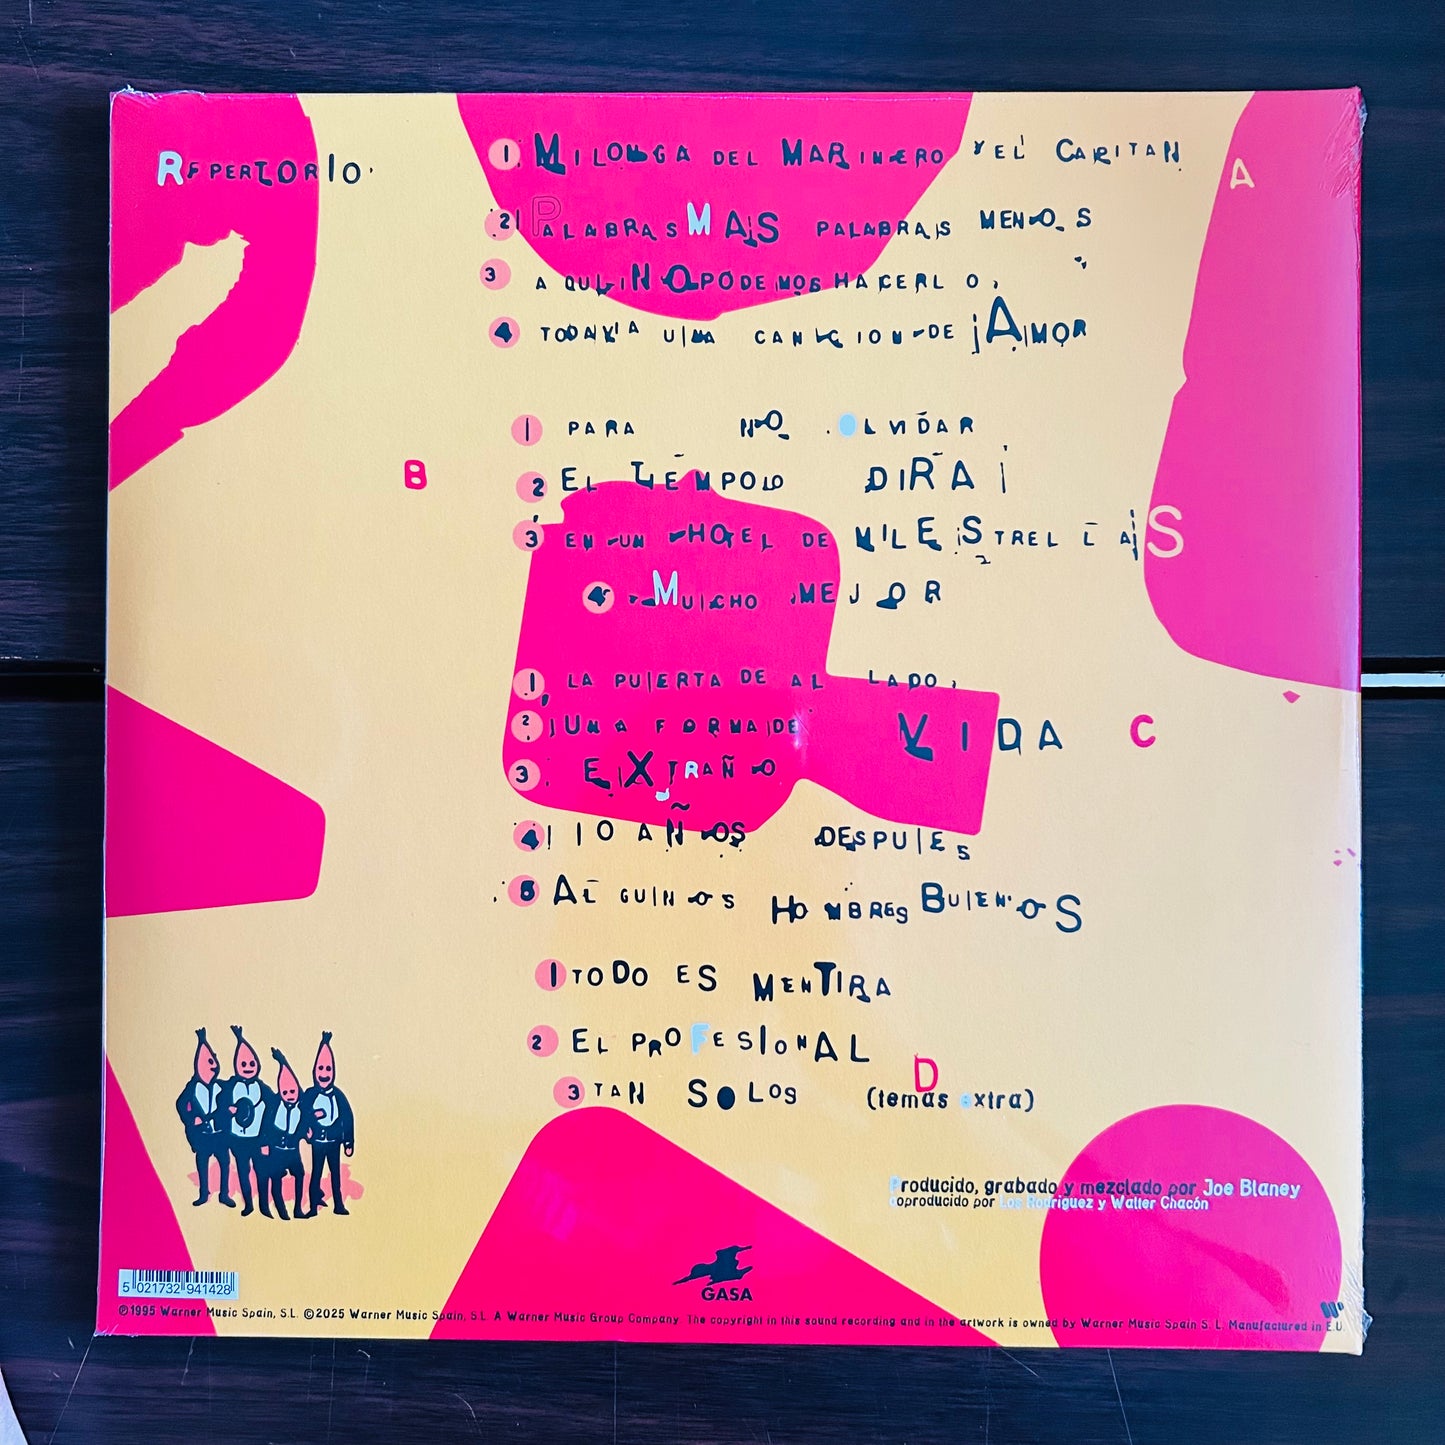 REPERTORIO.
1 MILONGA DEL MARINERO Y EL CAPITAN
A
2 PALABRAS MAS PALABRAS MENOS
3 AQUI NO PODEMOS HACERLO
4 TODAVIA UNA CANCION DE AMOR
1 PARA NO OLVIDAR
B
2 EL TIEMPO LO DIRA
3 EN UN HOTEL DE MIL ESTRELLAS
4 MUCHO MEJOR
1 LA PUERTA DE AL LADO
2 UNA FORMA DE VIDA
C
3 EXTRAÑO
4 10 AÑOS DESPUES
5 ALGUNOS HOMBRES BUENOS
1 TODO ES MENTIRA
2 EL PROFESIONAL
D
3 TAN SOLOS (temas extra)
Producido, grabado y mezclado por Joe Blaney
Coproducido por Los Rodriguez y Walter Chacón
GASA
5 021732 941428
℗1995 Warner Music Spain, S.L. ©2025 Warner Music Spain, S.L. A Warner Music Group Company. The copyright in this sound recording and in the artwork is owned by Warner Music Spain S. L. Manufactured in E.U.